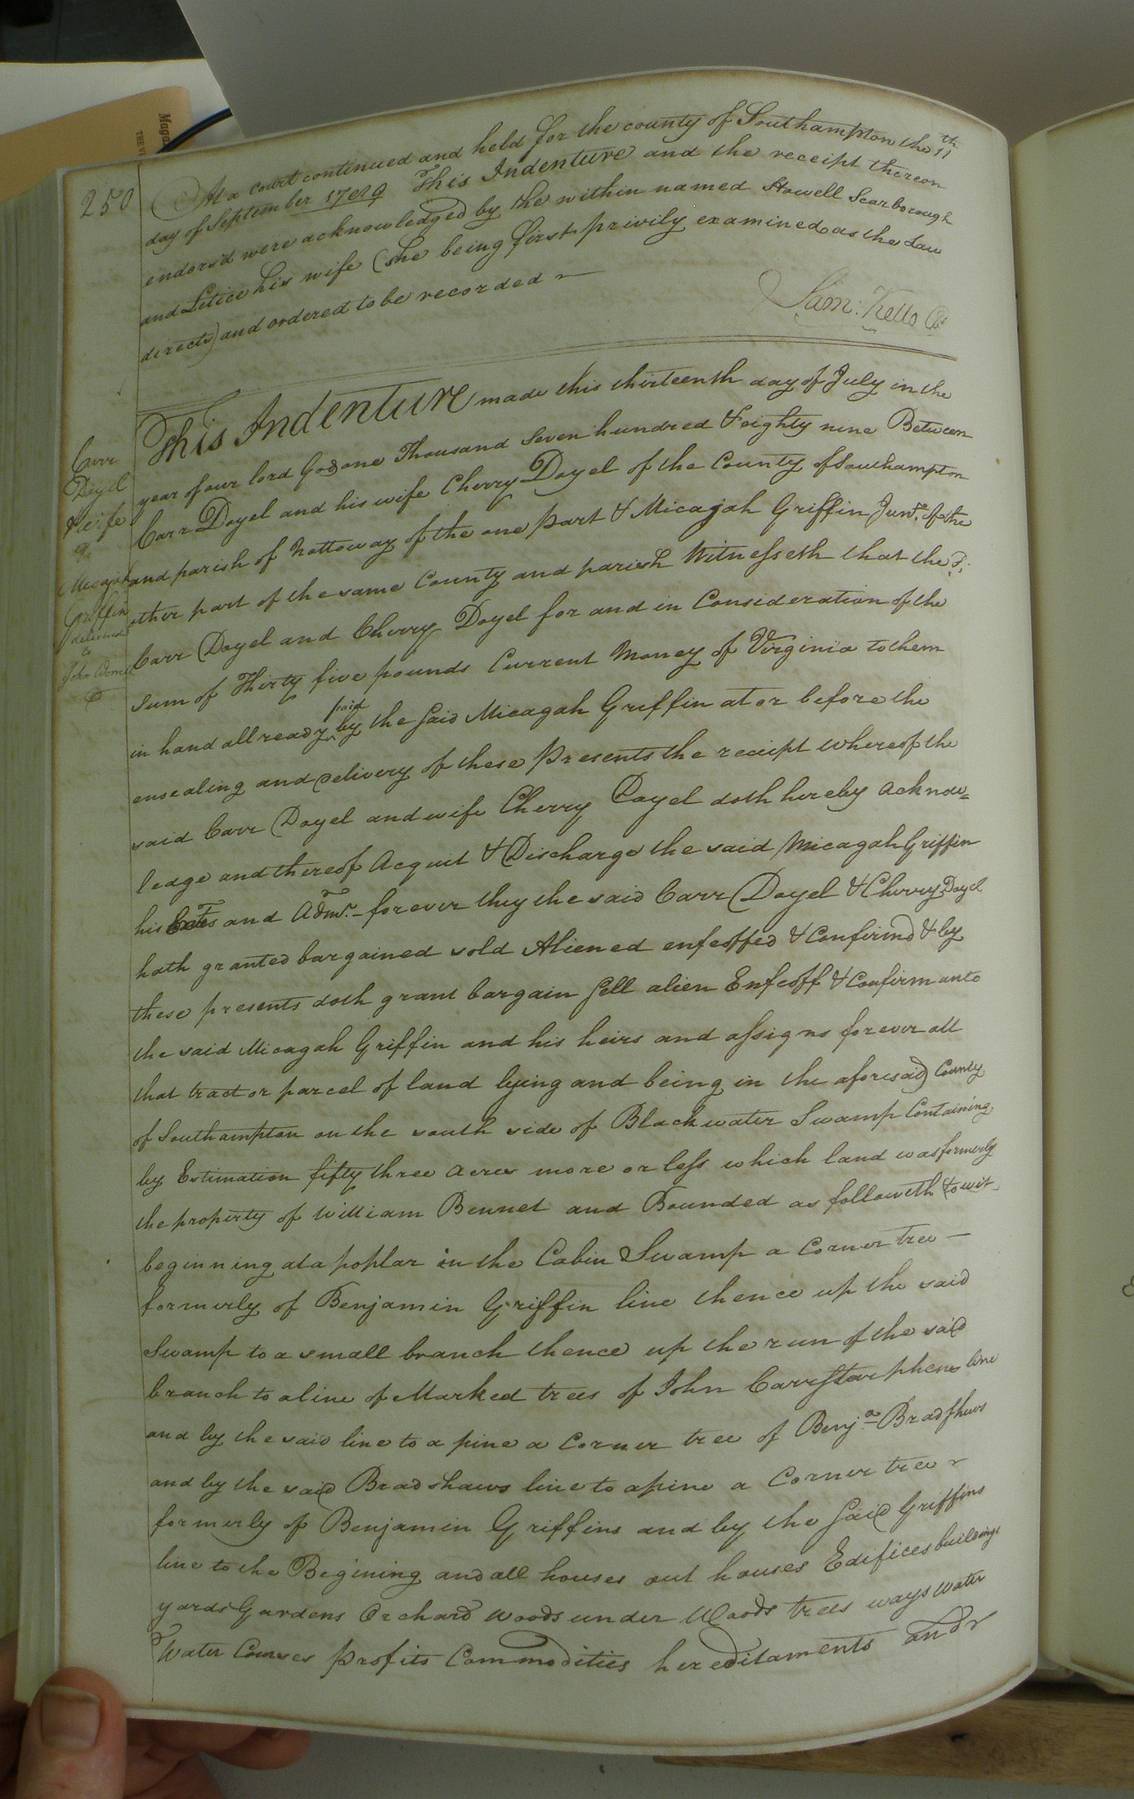 250
At a court continued and held for the county of Southampton the 11th
day of September 1789 This Indenture and the receipt thereon
endorsd were acknowledged by the within named Howell Scarborough
and Letice his wife (she being first privily examined as the Law
directs) and ordered to be recorded
Sam: Kello Ct
This Indenture made this thirteenth day of July in the
year of our lord God one Thousand Seven hundred & eighty nine Between
Carr Doyel and his wife Cherry Doyel of the County of Southampton
and parish of Nottoway of the one part & Micajah Griffin Junr. of the
other part of the same County and parish Witnesseth that the sd.
Carr Doyel and Cherry Doyel for and in Consideration of the
Sum of Thirty five pounds Current Money of Virginia to them
in hand allready paid by the said Micagah Griffin at or before the
ensealing and delivery of these Presents the receipt whereof the
said Carr Doyel and wife Cherry Doyel doth hereby acknow=
ledge and thereof Acquit & Discharge the said Micagah Griffin
his and Admrs. forever they the said Carr Doyel & Cherry Doyel
hath granted bargained sold Aliened enfeoffed & Confirmd & by
these presents doth grant bargain sell alien Enfeoff & Confirm unto
the said Micagah Griffin and his heirs and assigns forever all
that tract or parcel of land lying and being in the aforesad County
of Southampton on the south side of Blackwater Swamp Containing
by Estimation fifty three acres more or less which land was formerly
the property of William Bennet and Bounded as followeth to wit
beginning at a poplar in the Cabin Swamp a Corner tree —
formerly of Benjamin Griffin line thence up the said
Swamp to a small branch thence up the run of the said
branch to a line of Marked trees of John Carrstarphens line
and by the said line to a pine a Corner tree of Benja. Bradshaws
and by the said Bradshaws line to a pine a Corner tree
formerly of Benjamin Griffins and by the said Griffins
line to the Begining and all houses out houses Edifices buildings
yards Gardens Orchard woods under Woods trees ways water
Water Courses profits Commodities hereditaments and
Carr
Doyel
& wife
Micajah
Griffin
delivered
to
John